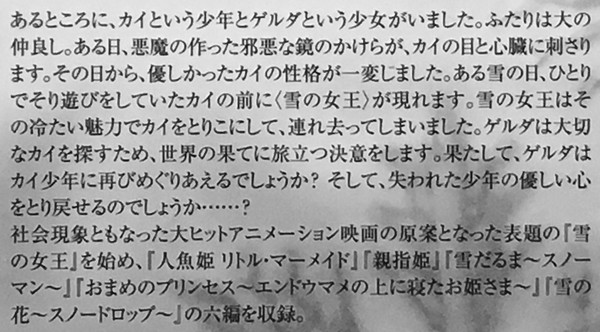 あるところに、カイという少年とゲルダという少女がいました。ふたりは大の
仲良し。ある日、悪魔の作った邪悪な鏡のかけらが、カイの目と心臓に刺さり
ます。その日から、優しかったカイの性格が一変しました。ある雪の日、ひとり
でそり遊びをしていたカイの前に〈雪の女王〉が現れます。雪の女王はそ
の冷たい魅力でカイをとりこにして、連れ去ってしまいました。ゲルダは大切
なカイを探すため、世界の果てに旅立つ決意をします。果たして、ゲルダは
カイ少年に再びめぐりあえるでしょうか? そして、失われた少年の優しい心
をとり戻せるのでしょうか……?
社会現象ともなった大ヒットアニメーション映画の原案となった表題の『雪
の女王』を始め、『人魚姫 リトル・マーメイド』『親指姫』『雪だるま〜スノー
マン〜』『おまめのプリンセス〜エンドウマメの上に寝たお姫さま〜』『雪の
花〜スノードロップ〜』の六編を収録。